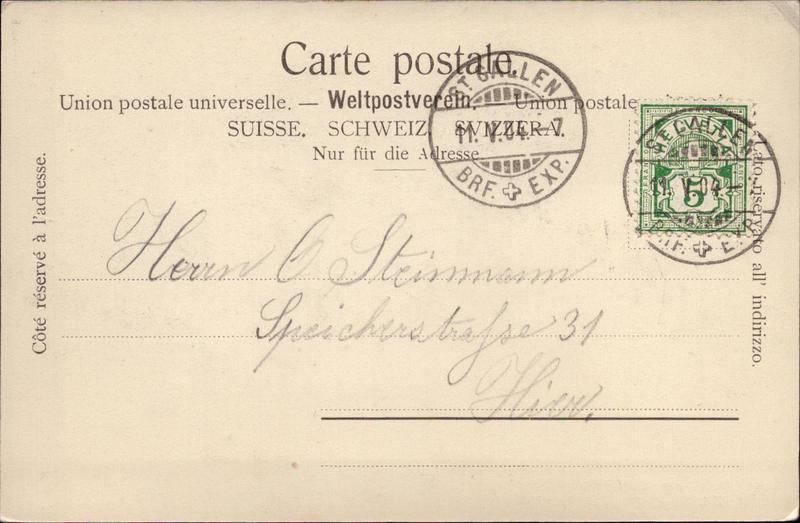 Carte postale.
Union postale universelle. — Weltpostverein. — Union postale
SUISSE. SCHWEIZ. SVIZZERA.
Nur für die Adresse
Côté réservé à l'adresse.
Lato riservato all' indirizzo.
ST. GALLEN
11. V. 04. – 7
BRF. EXP.
HELVETIA
5
ST. GALLEN
11. V. 04.
BRF. EXP.
Herrn O Steinmann
Speicherstrasse 31
Hier.